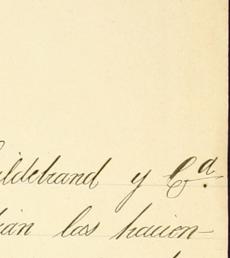 ildebrand y Cª.
ián los hacien-